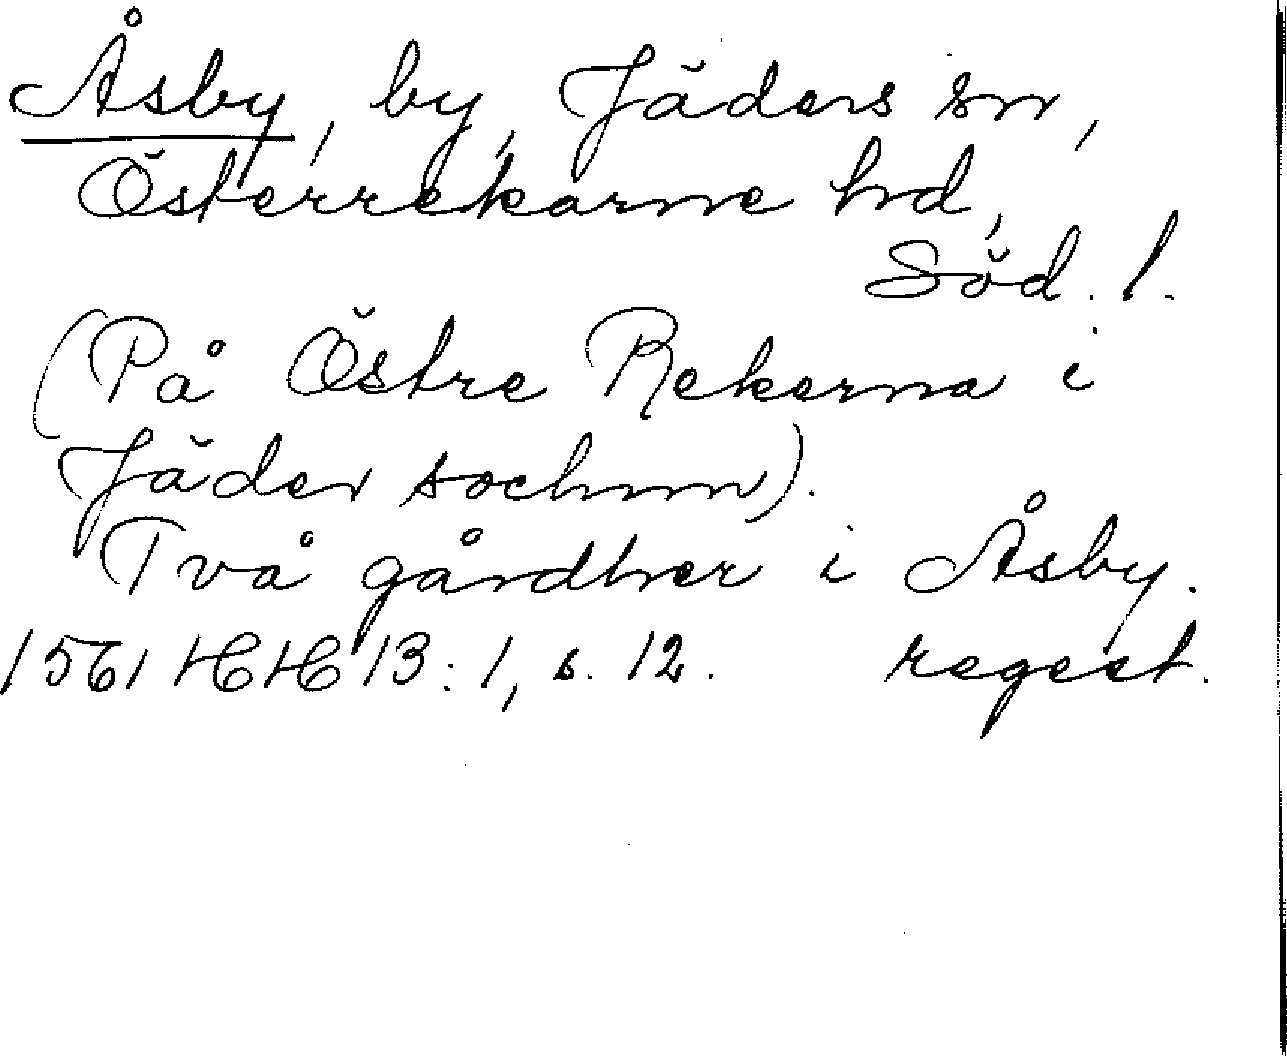 Åsby, by, Jäders sn,
Österrekarne hd,
Söd. l.
(På Östre Rekerna i
Jäder sochnn).
Två gårdher i Åsby.
1561 HH 13:1, s. 12. regest.